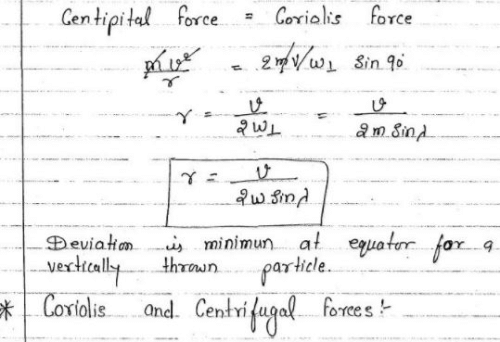 Centipital force = Coriolis force
m v² / r = 2 m v ω⊥ Sin 90°
r = v / 2ω⊥ = v / 2m Sin λ
r = v / 2ω Sin λ
Deviation is minimun at equator for a
vertically thrown particle.
* Coriolis and Centrifugal forces :-